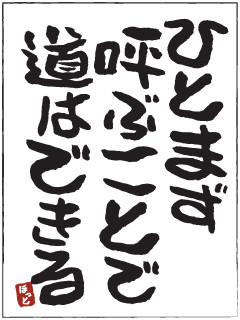 ひとまず
呼ぶことで
道はできる
ほっと